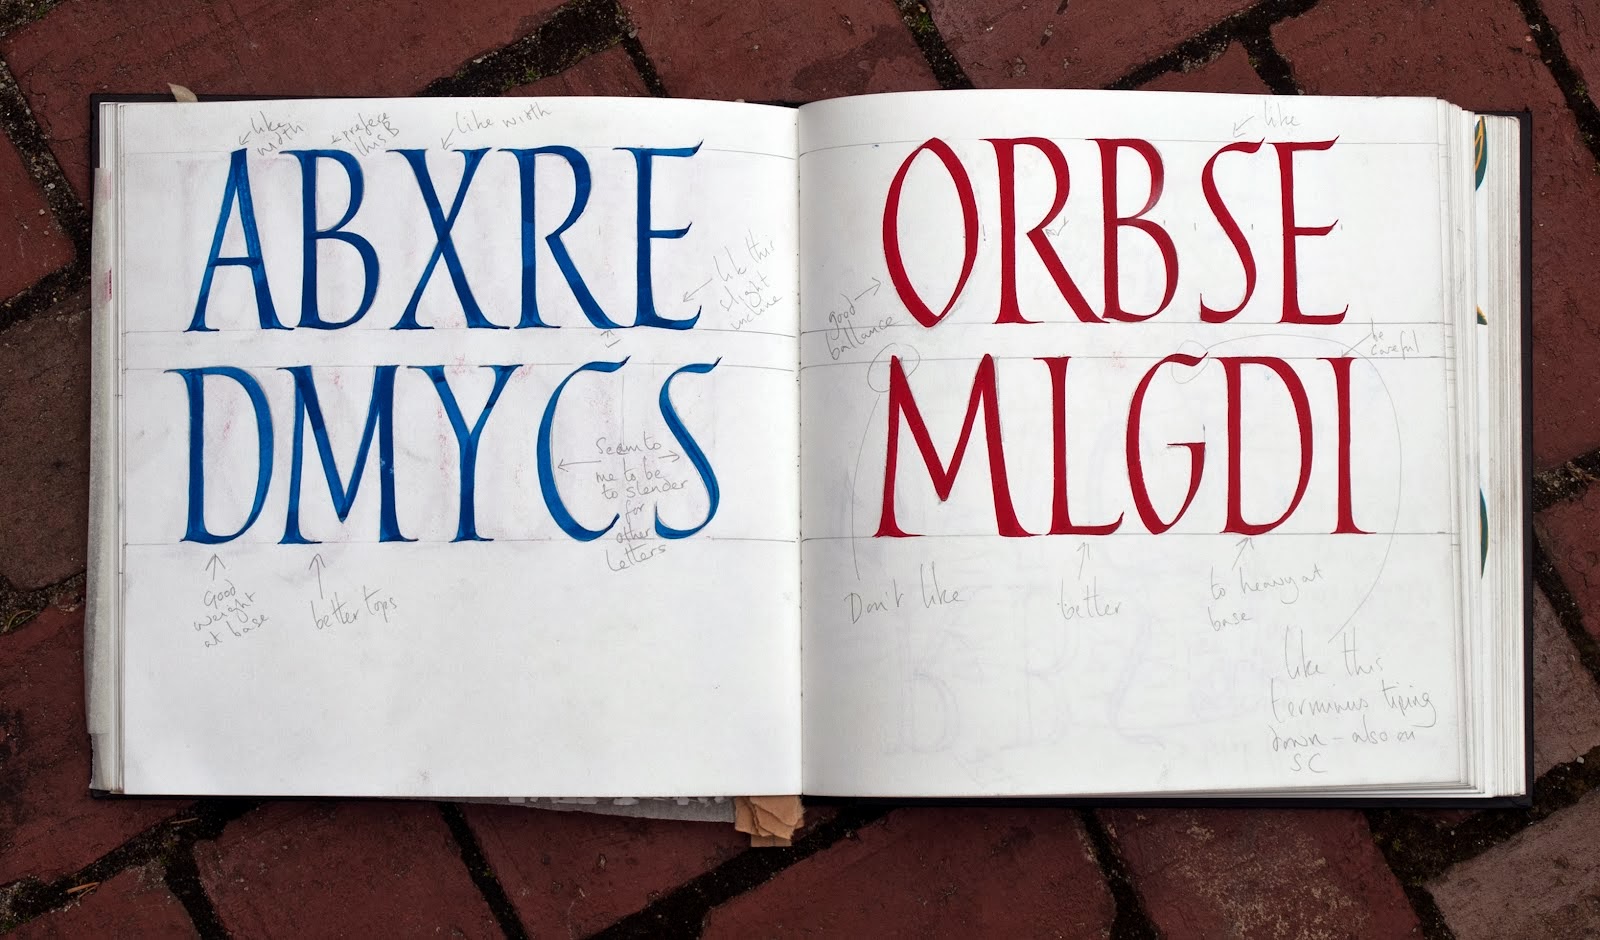 like
width
prefere
this B
like width
ABXRE
like this
slight
incline
DMYCS
Seem to
me to be
to slender
for
other
letters
Good
weight
at base
better tops
like
ORBSE
good
ballance
be
careful
MLGDI
Don't like
better
to heavy at
base
like this
terminus tiping
down - also on
SC